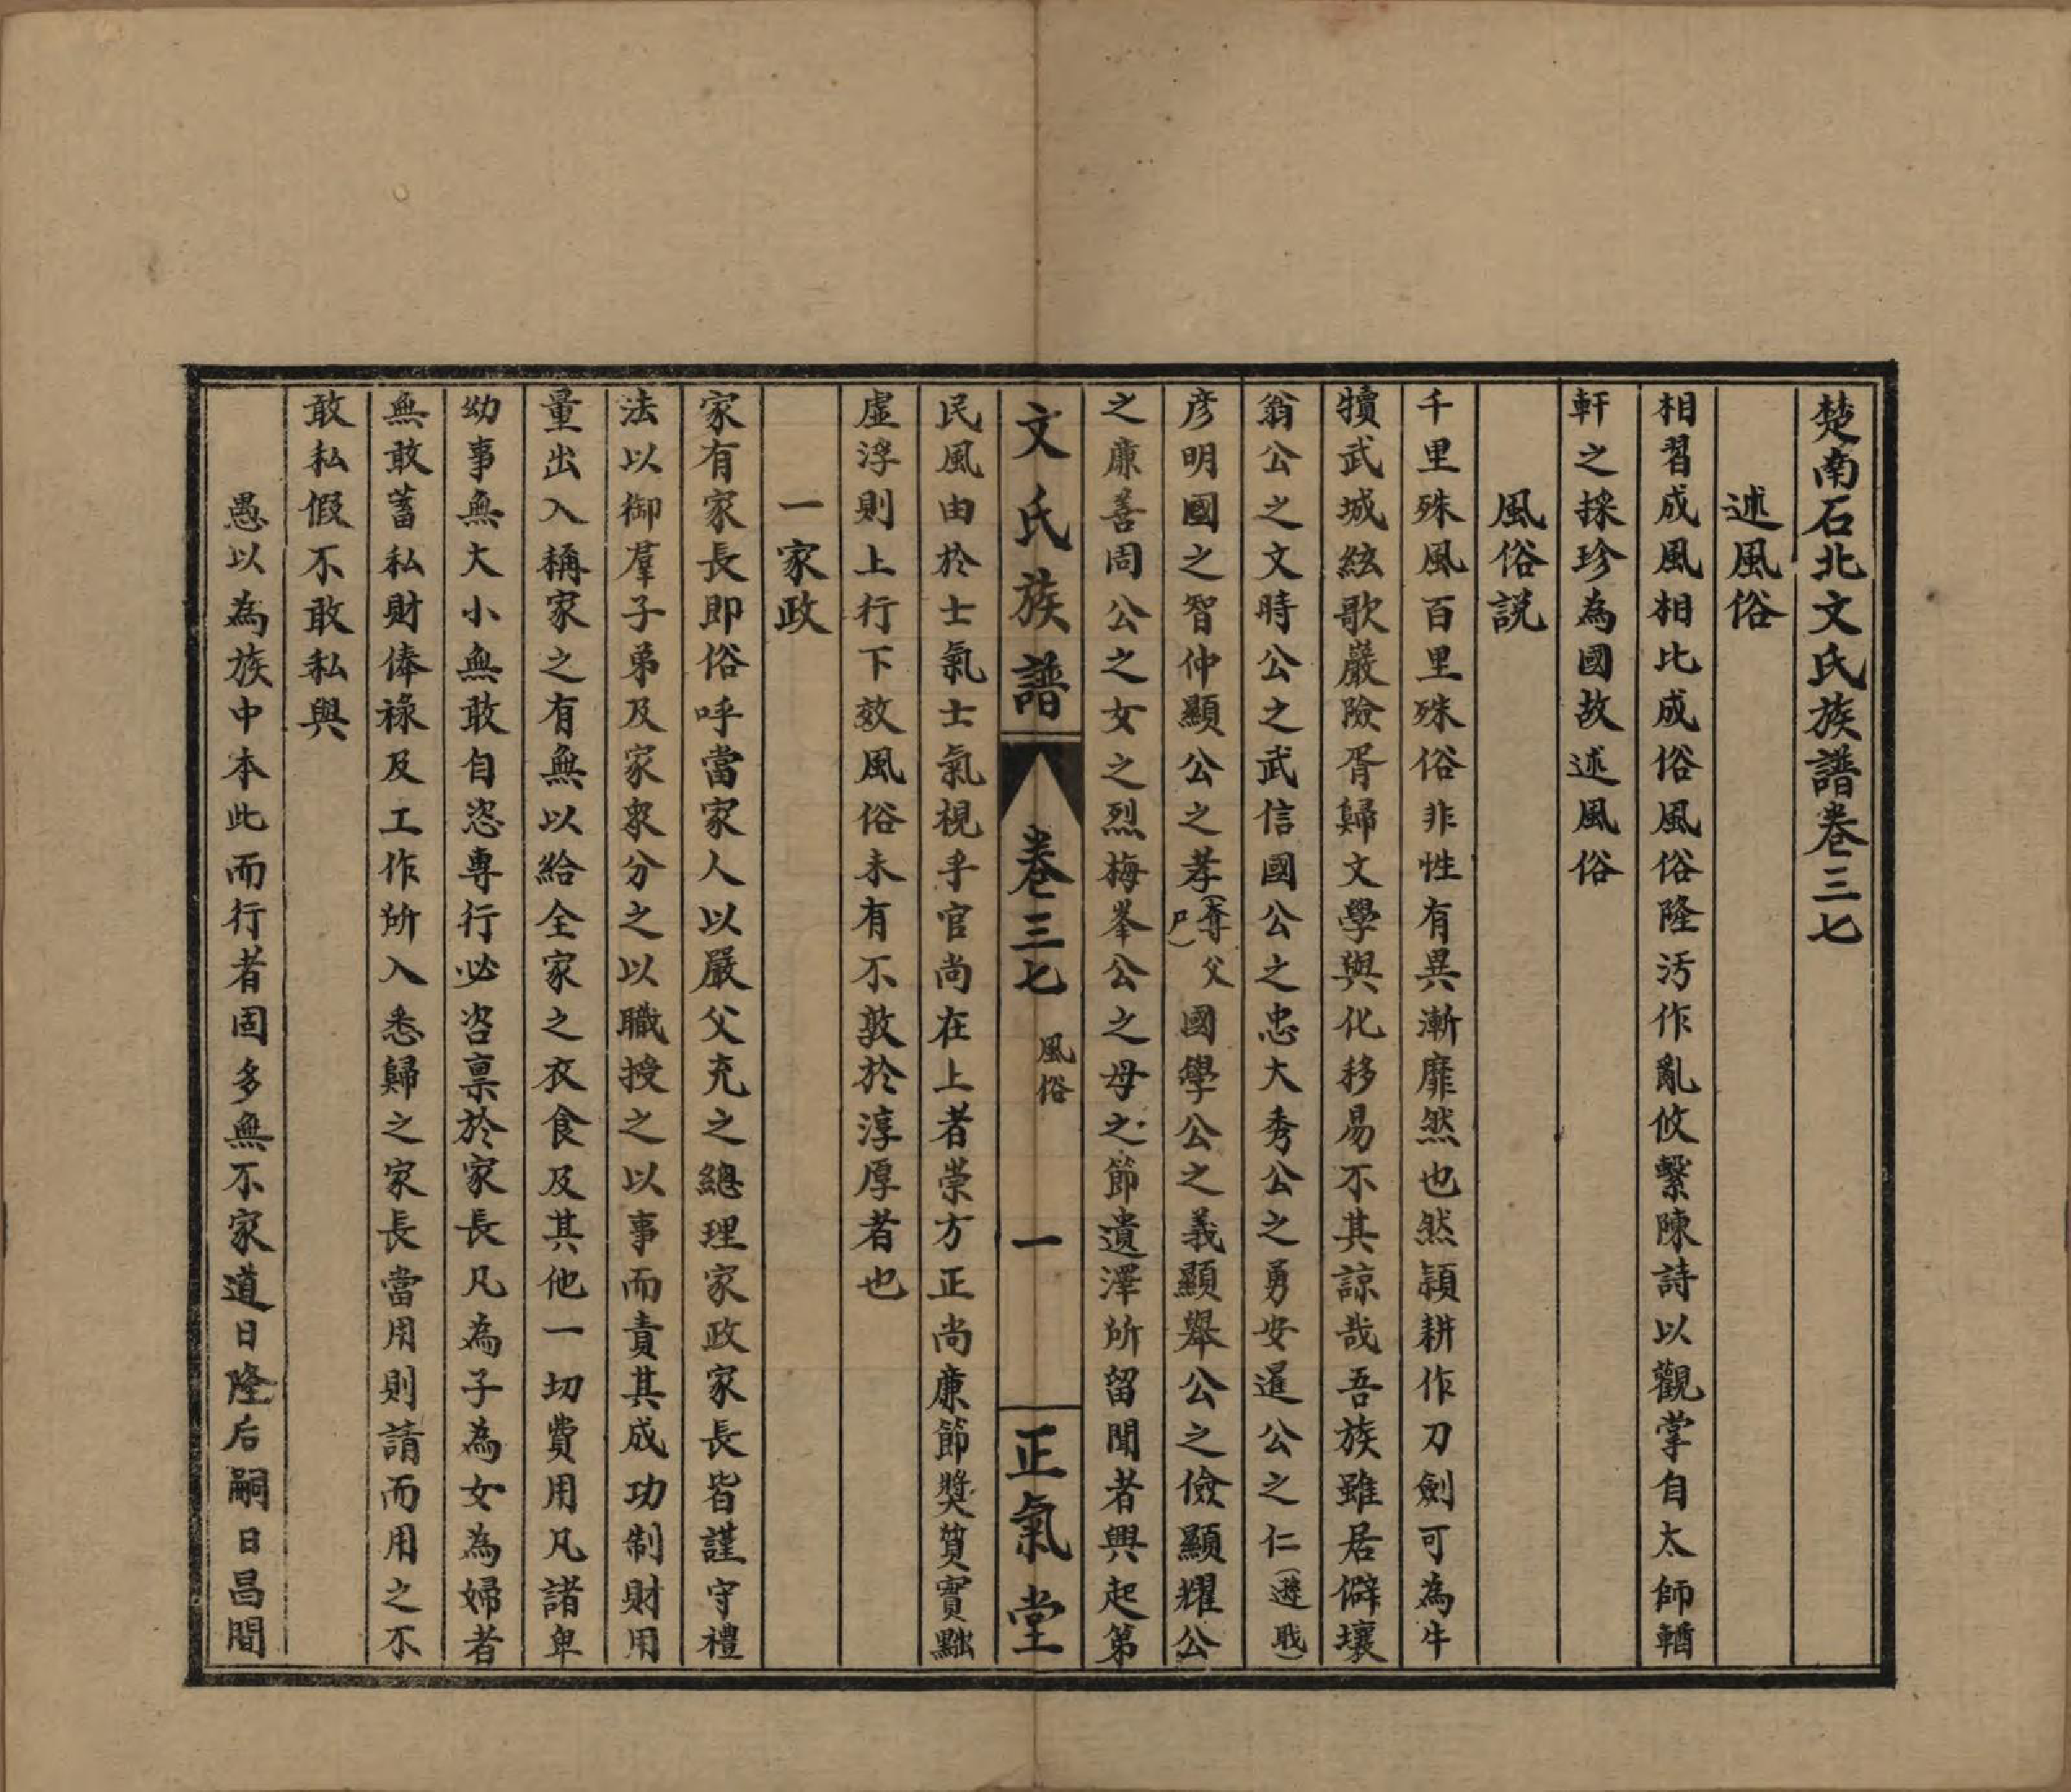 楚南石北文氏族譜卷三七
述風俗
相習成風相比成俗風俗隆汚作亂攸繫陳詩以觀掌自太師輶
軒之採珍為國故述風俗
風俗説
千里殊風百里殊俗非性有異漸靡然也然潁耕作刀劍可為牛
犢武城絃歌嚴險胥歸文學與化移易不其諒哉吾族雖居僻壤
翁公之文時公之武信國公之忠大秀公之勇安暹公之仁(遊戰)
彦明國之智仲顯公之孝(奪父尸)國學公之義顯舉公之儉顯耀公
之廉善周公之女之烈梅峯公之母之節遺澤所留聞者興起第
文氏族譜 卷三七 風俗 一 正氣堂
民風由於士氣士氣視乎官尚在上者崇方正尚廉節獎質實黜
虛浮則上行下效風俗未有不敦於淳厚者也
一家政
家有家長即俗呼當家人以嚴父充之總理家政家長皆謹守禮
法以御羣子弟及家衆分之以職授之以事而責其成功制財用
量出入稱家之有無以給全家之衣食及其他一切費用凡諸卑
幼事無大小無敢自恣專行必咨禀於家長凡為子為女為婦者
無敢蓄私財俸祿及工作所入悉歸之家長當用則請而用之不
敢私假不敢私與
愚以為族中本此而行者固多無不家道日隆后嗣日昌間